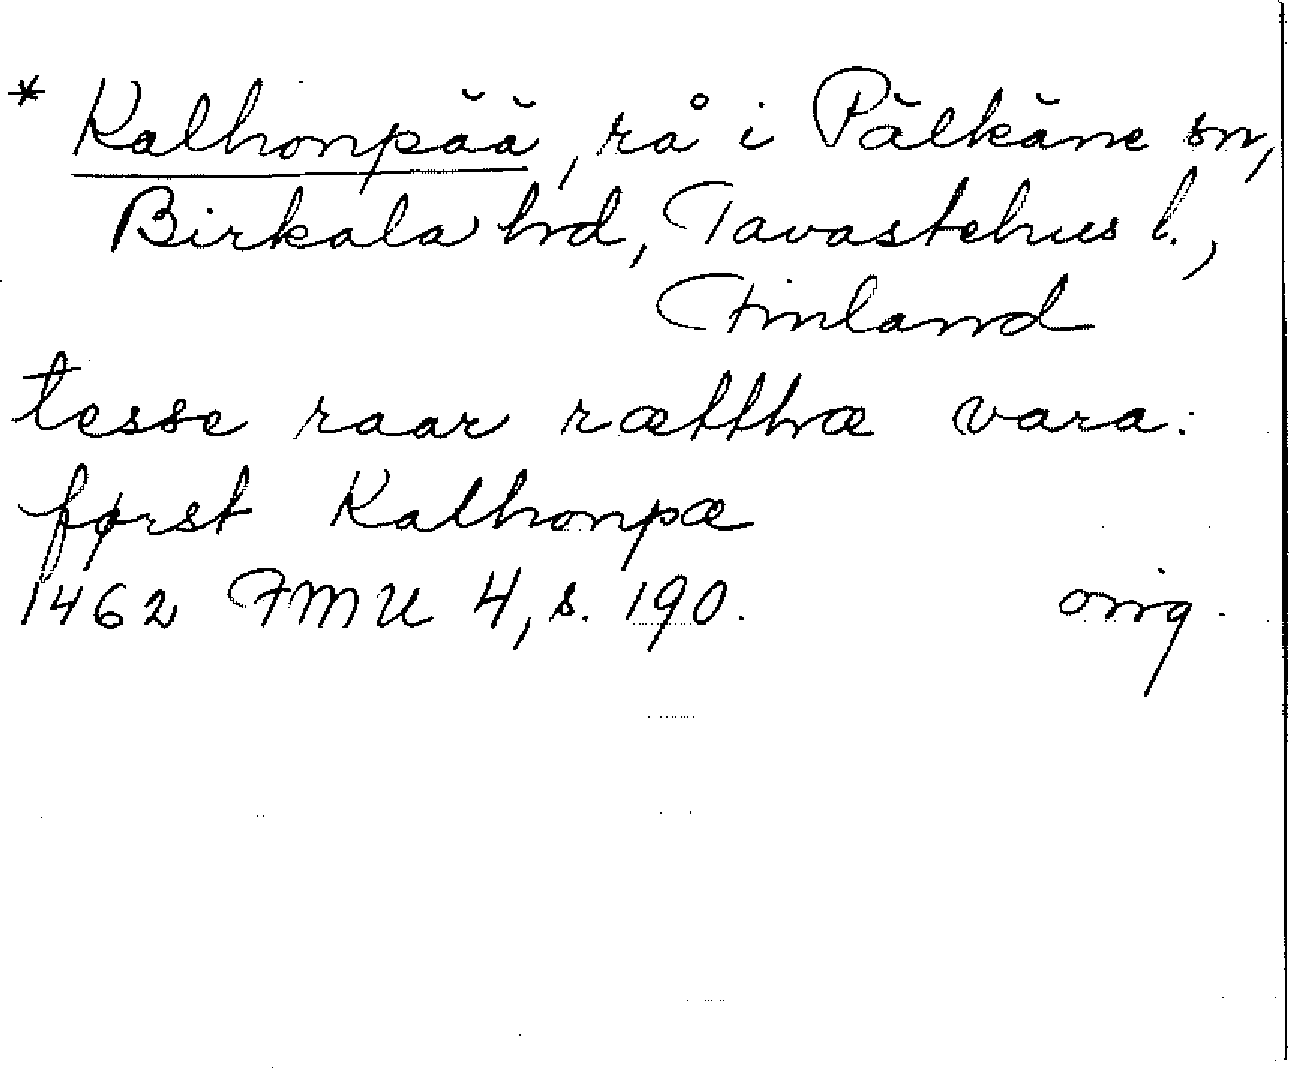 * Kalhonpää, rå i Pälkäne sn,
Birkala hd, Tavastehus l.,
Finland
tesse raar rætthæ vara:
først Kalhonpæ
1462 FMU 4, s. 190. orig.